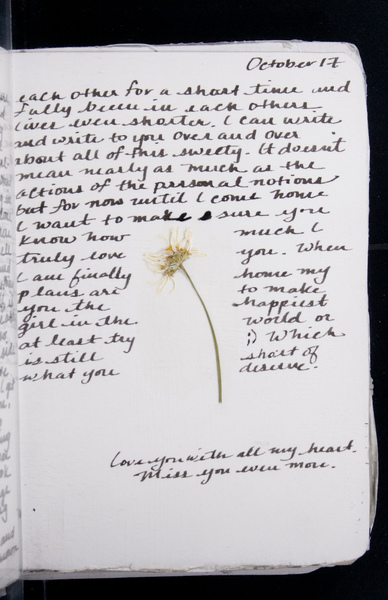 October 17
each other for a short time and
fully been in each others
lives even shorter. I can write
and write to you over and over
about all of this sweety. It doesn't
mean nearly as much as the
actions of the personal notions
but for now until I come home
I want to make sure you
know how much I
truly love you. When
I am finally home my
plans are to make
you the happiest
girl in the world or
at least try ;) Which
is still short of
what you deserve.
Love you with all my heart.
Miss you even more.